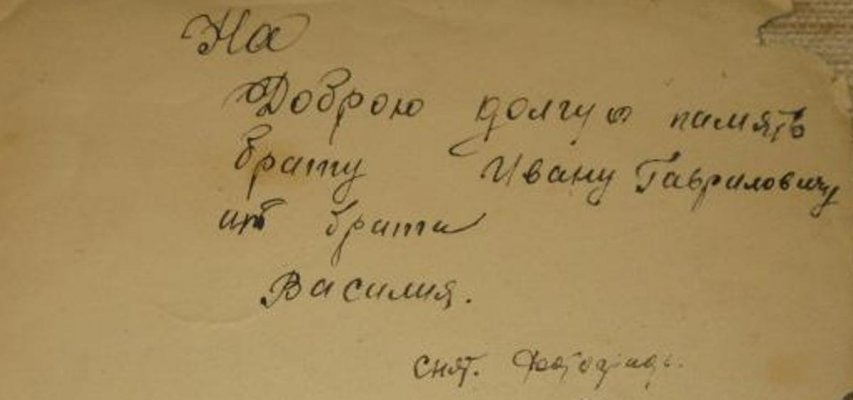 На
Доброю долгую память
брату Ивану Гавриловичу
от брата
Василия.
снят.